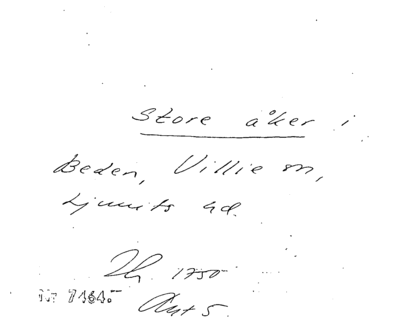 Store åker i
Beden, Villie sn,
Ljunits hd.
1750
Nr 7464.
Ant 5.